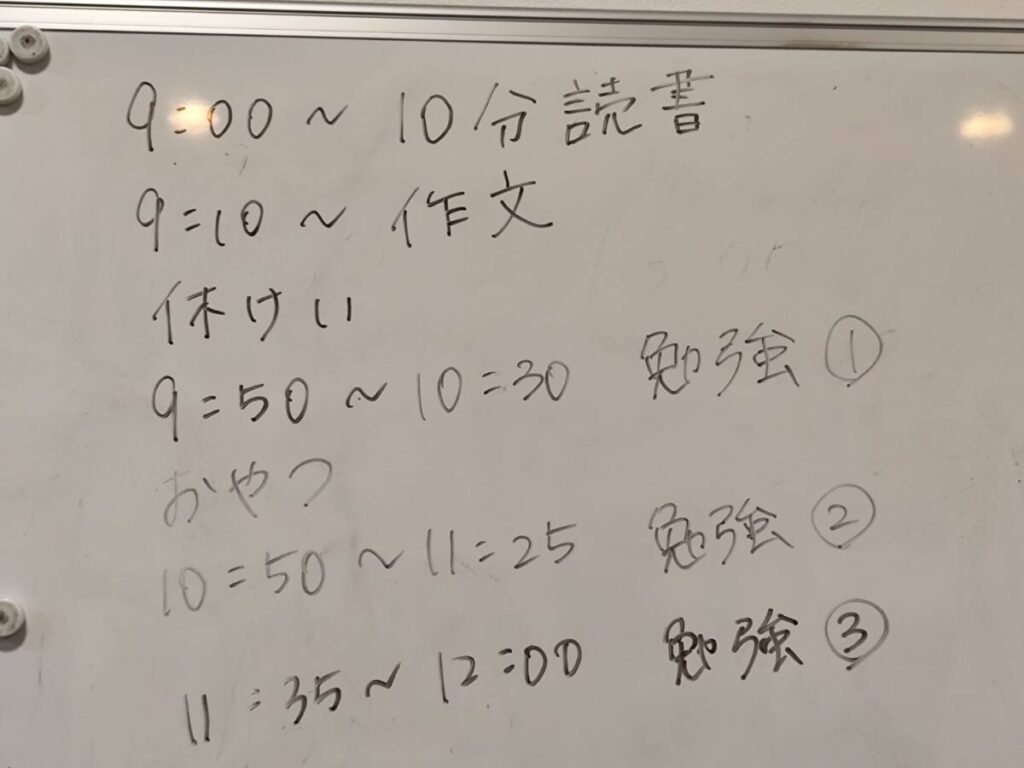 9:00 ~ 10分読書
9:10 ~ 作文
休けい
9:50 ~ 10:30 勉強 ①
おやつ
10:50 ~ 11:25 勉強 ②
11:35 ~ 12:00 勉強 ③